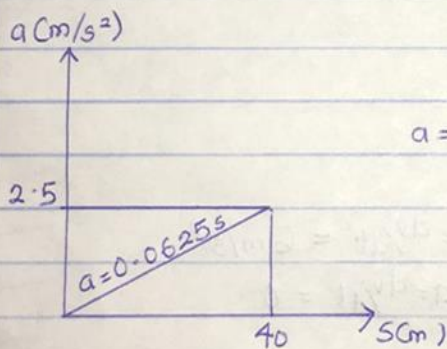 a(m/s²)
a =
2.5
a=0.0625s
40
S(m)